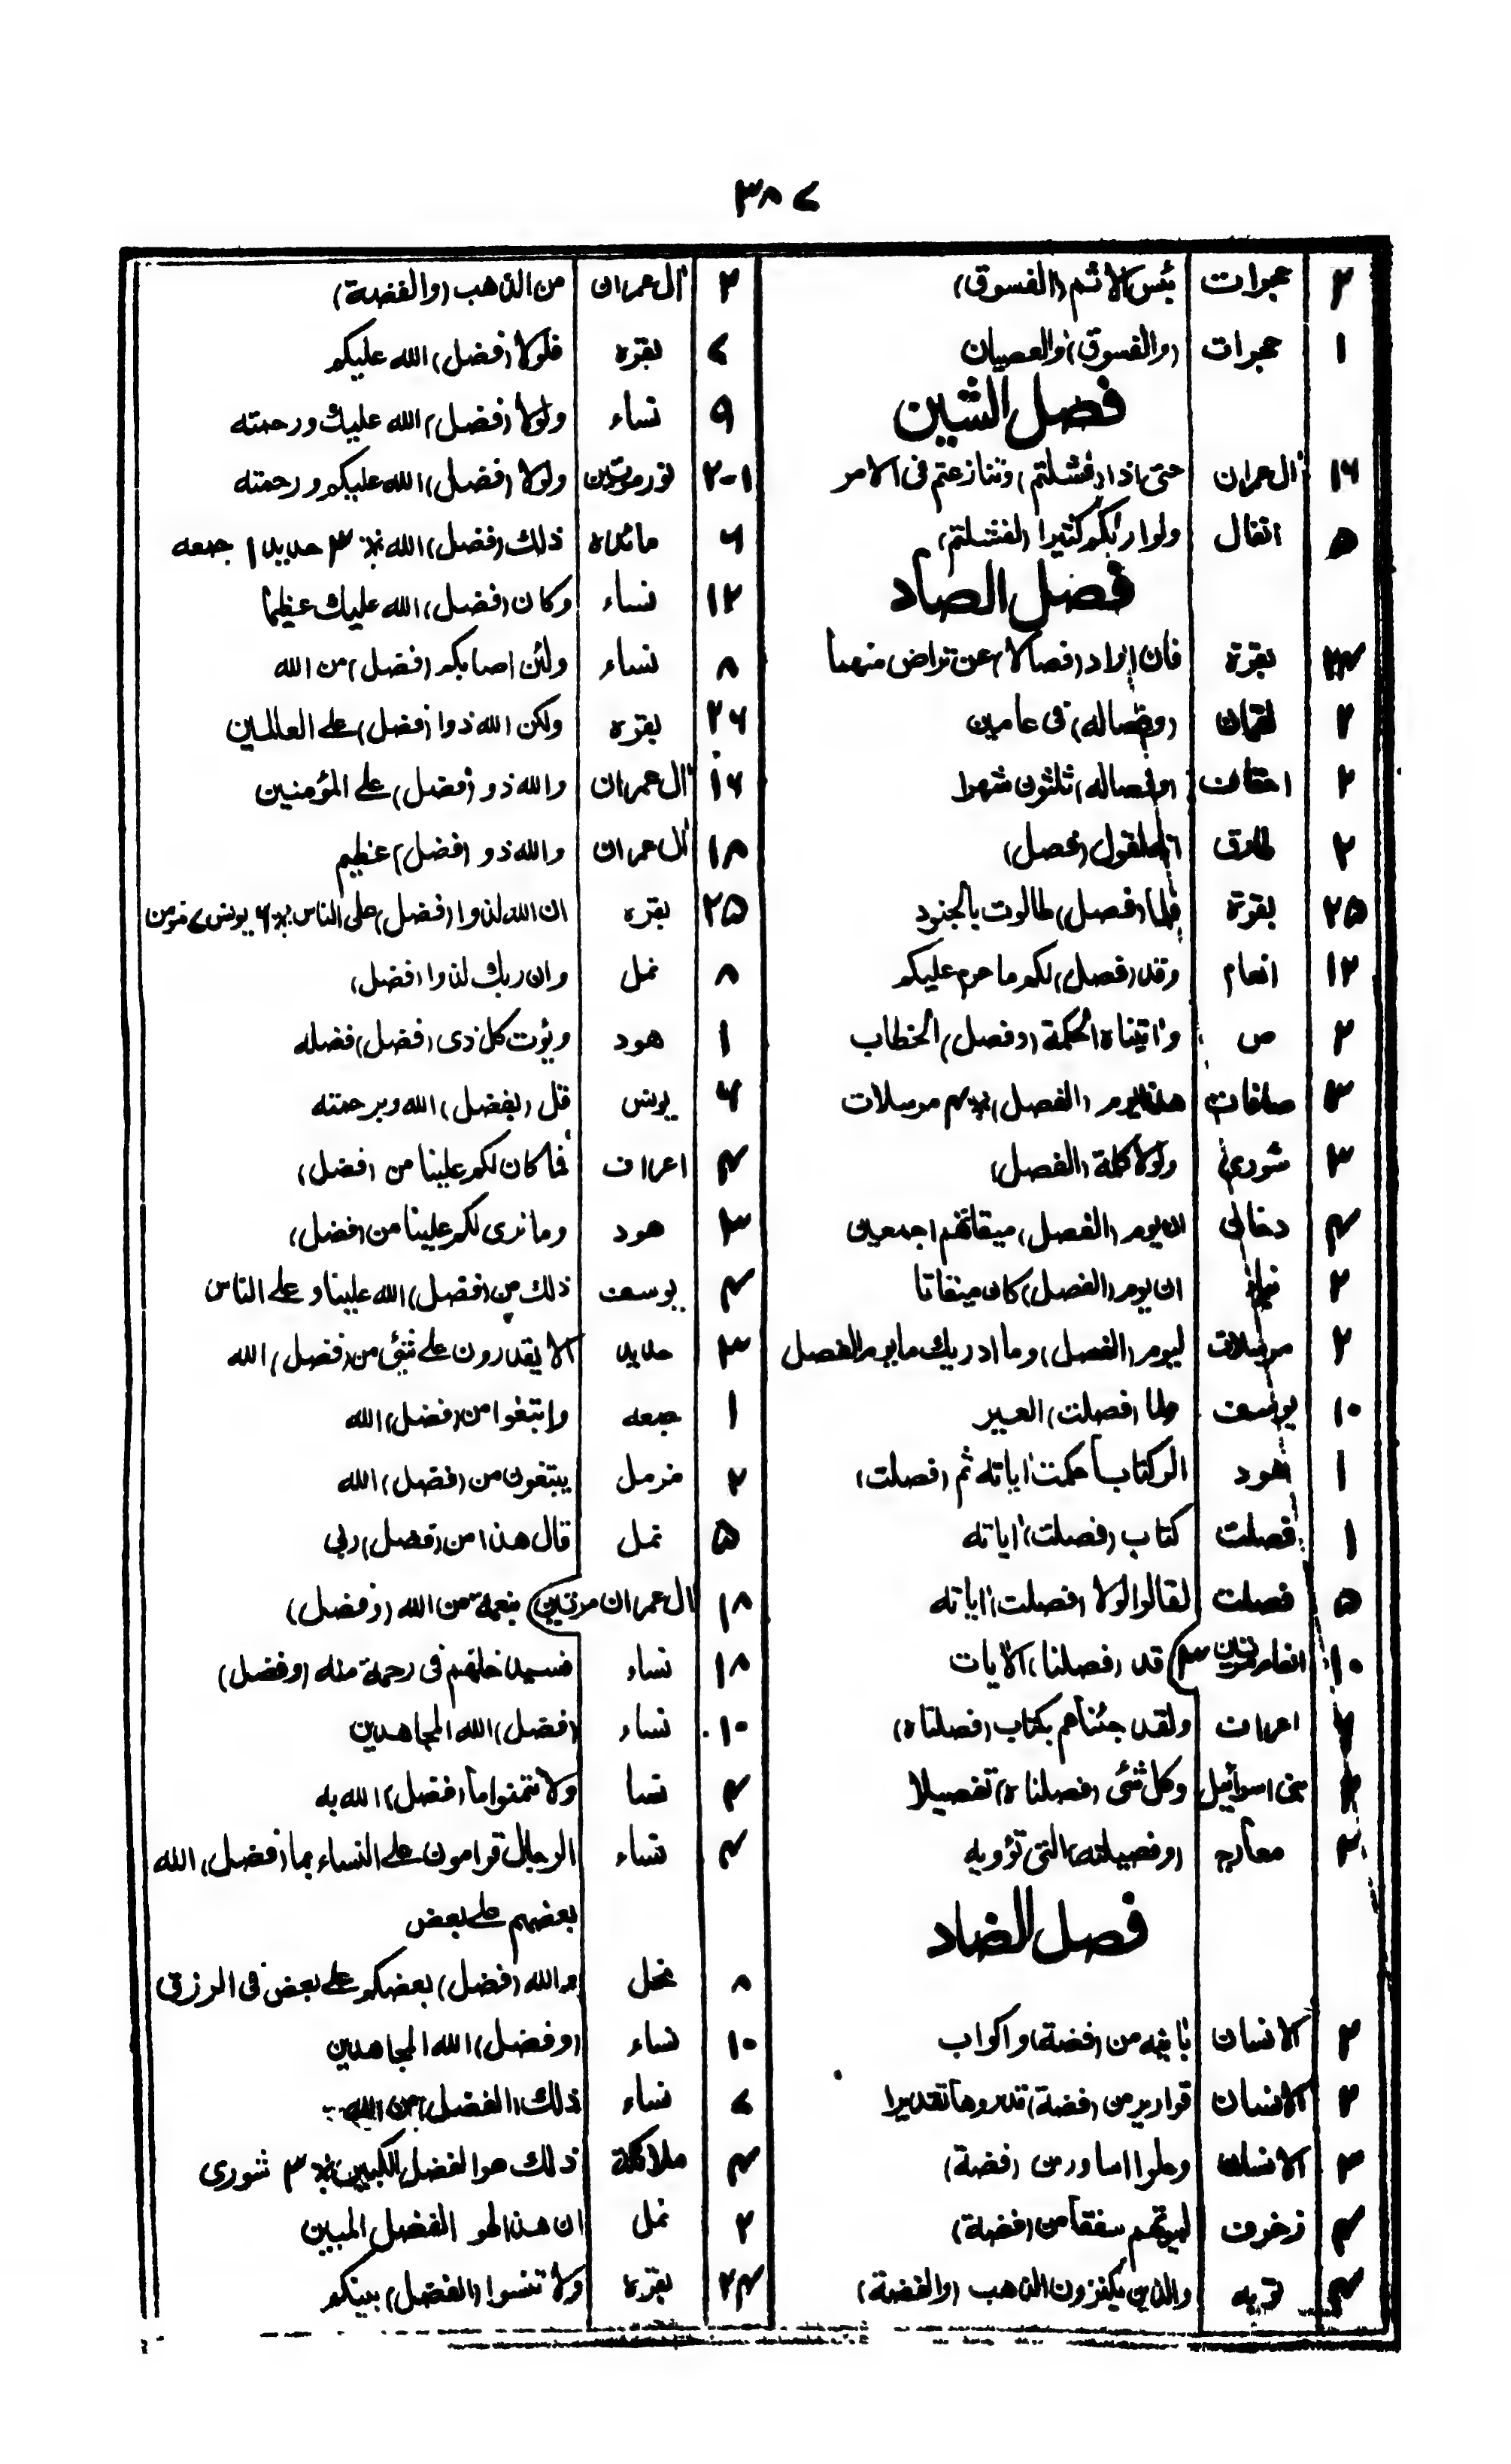 ۳۸۷
۲ حجرات بئس الاثم (الفسوق)
۱ حجرات (والفسوق) والعصیان
فصل الشین
۱۶ اٰل عمران حتی اذا (فشلتم) وتنازعتم فی الامر
۵ انفال ولو ارٰىکهم کثیرا (لفشلتم)
فصل الصاد
بقرة فان اراد (فصالا) عن تراض منهما
۲ لقمان (وفصاله) فی عامین
۲ احقاف (وفصاله) ثلثون شهرا
۲ طارق انه لقول (فصل)
۲۵ بقرة فلما (فصل) طالوت بالجنود
۱۲ انعام وقد (فصل) لکم ما حرم علیکم
۲ ص واٰتیناه الحکمة (وفصل) الخطاب
۳ صافات هذا یوم (الفصل) ۴ مرسلات
۳ شوری ولولا کلمة (الفصل)
دخان ان یوم (الفصل) میقاتهم اجمعین
۲ ان یوم (الفصل) کان میقاتا
۲ مرسلات لیوم (الفصل) وما ادریك ما یوم الفصل
۱۰ یوسف ولما (فصلت) العیر
۱ هود الر کتاب احکمت اٰیاته ثم (فصلت)
۱ فصلت کتاب (فصلت) اٰیاته
۵ فصلت لقالوا لولا (فصلت) اٰیاته
قد (فصلنا) الاٰیات
اعراف ولقد جئناهم بکتاب (فصلناه)
بنی اسرائیل وکل شئ (فصلناه) تفصیلا
معارج (وفصیلته) التی تؤویه
فصل الضاد
۲ الانسان باٰنیه من (فضة) واکواب
۲ الانسان قواریر من (فضة) قدروها تقدیرا
۲ الانسان وحلوا اساور من (فضة)
۳ زخرف لبیوتهم سقفا من (فضة)
توبه والذین یکنزون الذهب (والفضة)
۲ اٰل عمران من الذهب (والفضة)
۷ بقره فلولا (فضل) الله علیکم
۹ نساء ولولا (فضل) الله علیك ورحمته
۱-۲ نور مرتین ولولا (فضل) الله علیکم ورحمته
۶ مائده ذلك (فضل) الله ۳ حدید ۱ جمعه
۱۲ نساء وکان (فضل) الله علیك عظیما
۸ نساء ولئن اصابکم (فضل) من الله
۲۶ بقره ولکن الله ذوا (فضل) علی العالمین
۱۶ اٰل عمران والله ذو (فضل) علی المؤمنین
۱۸ اٰل عمران والله ذو (فضل) عظیم
۲۵ بقره ان الله لذوا (فضل) علی الناس ۶ یونس ۷ مؤمن
۸ نمل وان ربك لذوا (فضل)
۱ هود ویؤت کل ذی (فضل) فضله
۶ یونس قل (بفضل) الله وبرحمته
۴ اعراف فما کان لکم علینا من (فضل)
۳ هود وما نری لکم علینا من (فضل)
۴ یوسف ذلك من (فضل) الله علینا وعلی الناس
۳ حدید الا یقدرون علی شئ من (فضل) الله
۱ جمعه وابتغوا من (فضل) الله
۲ مزمل یبتغون من (فضل) الله
۵ نمل قال هذا من (فضل) ربی
۱۸ اٰل عمران مرتین بنعمة من الله (وفضل)
۱۸ نساء فسیدخلهم فی رحمة منه (وفضل)
۱۰ نساء (فضل) الله المجاهدین
۴ نسا ولا تتمنوا ما (فضل) الله به
۴ نساء الرجال قوامون علی النساء بما (فضل) الله
بعضهم علی بعض
۸ نحل والله (فضل) بعضکم علی بعض فی الرزق
۱۰ نساء (وفضل) الله المجاهدین
۷ نساء ذلك (الفضل) من الله
۴ ملائکة ذلك هو الفضل الکبیر ۳ شوری
۲ نمل ان هذا لهو الفضل المبین
بقره ولا تنسوا (الفضل) بینکم